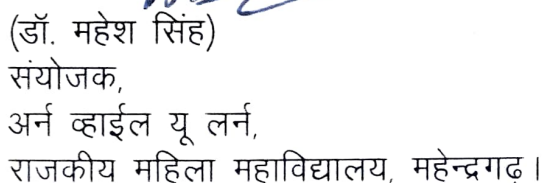 (डॉ. महेश सिंह)
संयोजक,
अर्न व्हाईल यू लर्न,
राजकीय महिला महाविद्यालय, महेन्द्रगढ़।